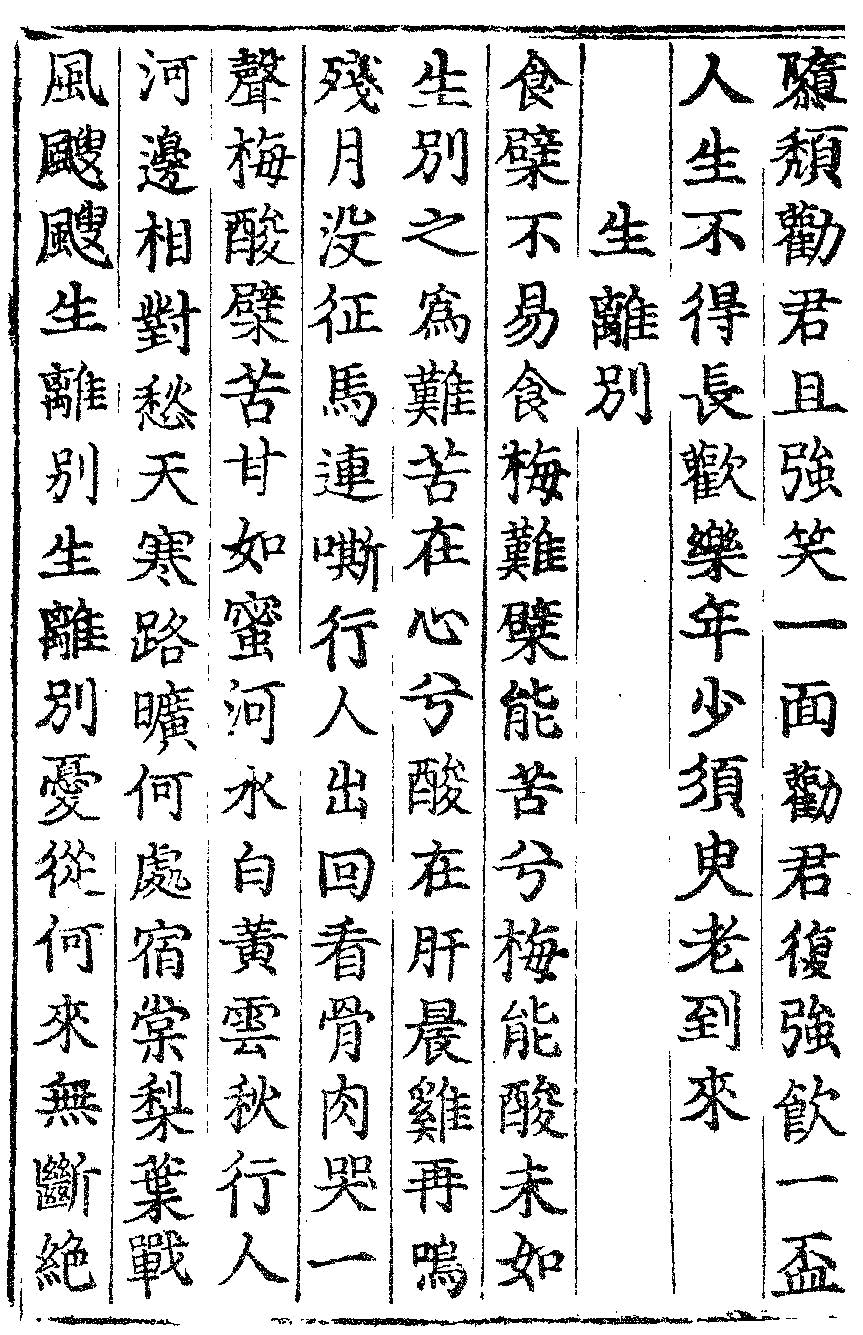 隳頽勸君且強笑一面勸君復強飲一盃
人生不得長歡樂年少須臾老到來
生離別
食檗不易食梅難檗能苦兮梅能酸未如
生別之爲難苦在心兮酸在肝晨雞再鳴
殘月没征馬連嘶行人出回看骨肉哭一
聲梅酸檗苦甘如蜜河水白黃雲秋行人
河邊相對愁天寒路曠何處宿棠梨葉戰
風颼颼生離別生離別憂從何來無斷絶